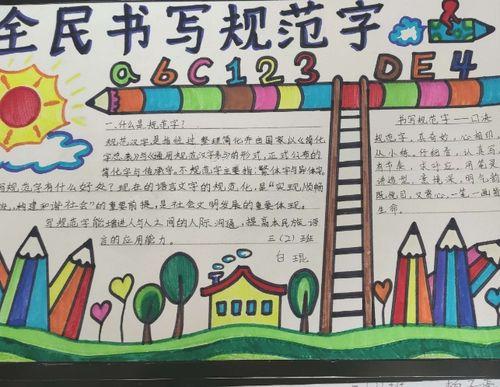 全民书写规范字
a b C 1 2 3 D E 4
一.什么是规范字?
规范汉字是指经过整理简化并由国家以《简化
字总表》与《通用规范汉字表》的形式,正式公布的
简化字与传承字。不规范字主要指:繁体字异体字。
写规范字有什么好处?现在的语言文字的规范化,是"实现顺畅
构建和谐社会"的重要前提,是社会文明发展的重要体现。
写规范字能增进人与人之间的人际沟通,提高本民族语
言的应用能力。
三(2)班
白琨
书写规范字——口决
规范字,真奇妙,心相印
从小练,仔细看,认真写,
生命。